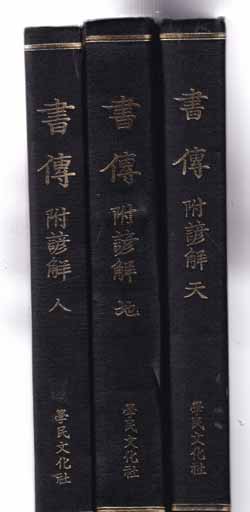 書傳 附諺解 天
學民文化社
書傳 附諺解 地
學民文化社
書傳 附諺解 人
學民文化社